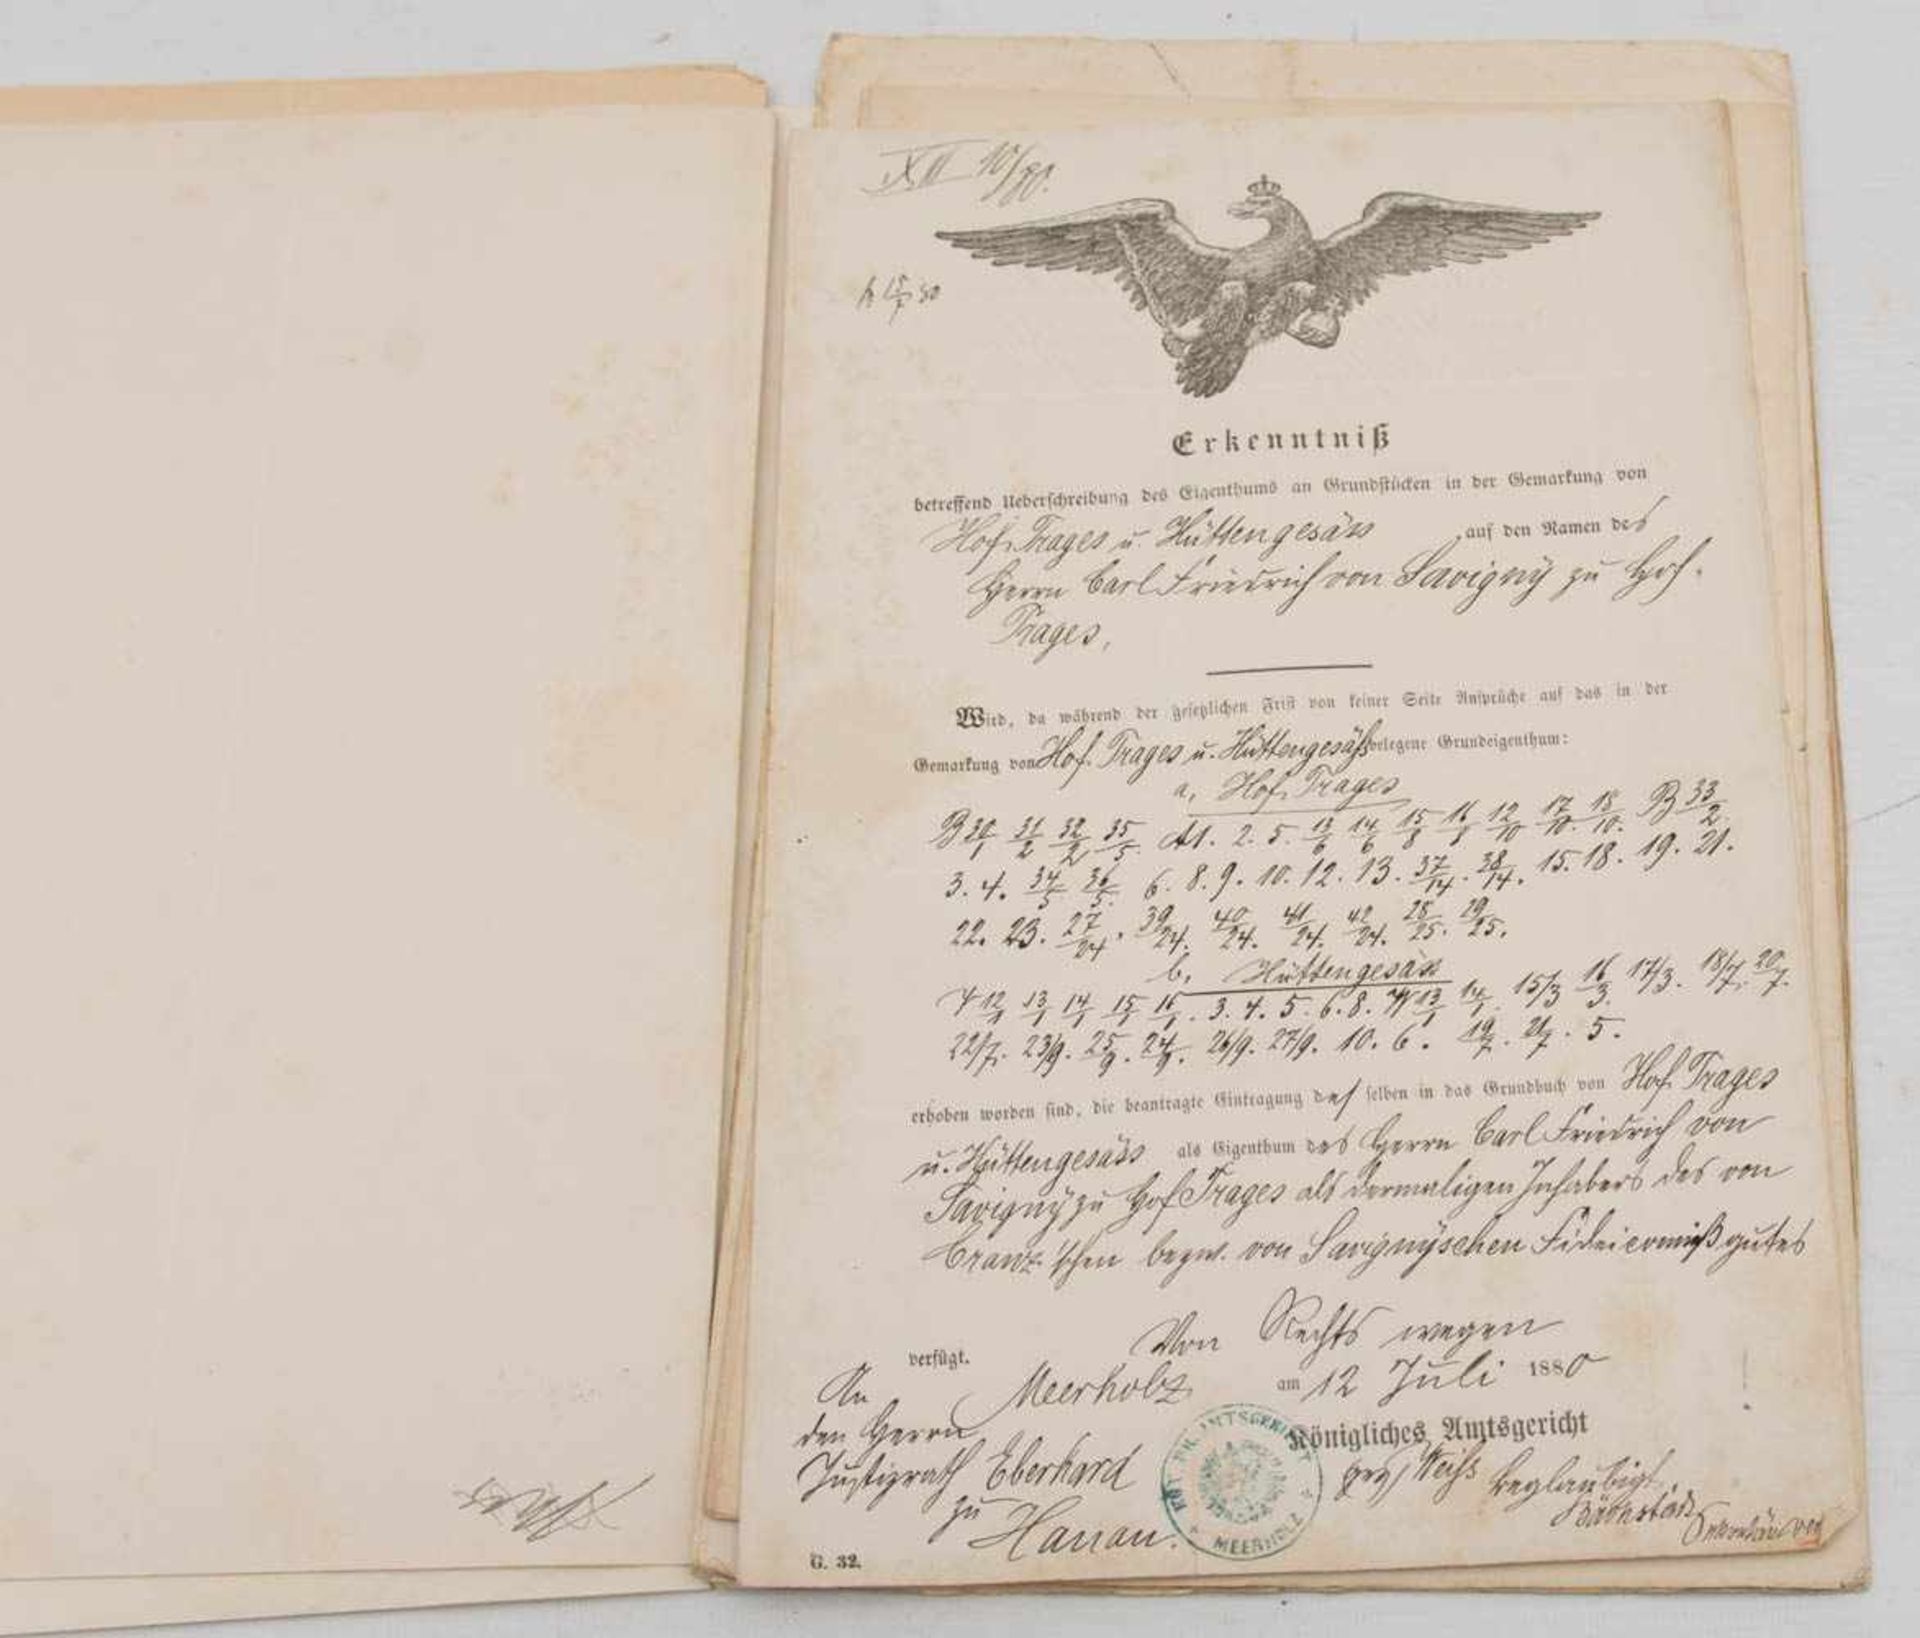 XII 10/80.
Erkenntniß
betreffend Ueberschreibung des Eigenthums an Grundstücken in der Gemarkung von
Hof Trages u. Hüttengesäss , auf den Namen des
Herrn Carl Friedrich von Savigny zu Hof
Trages.
Wird, da während der gesetzlichen Frist von keiner Seite Ansprüche auf das in der
Gemarkung von Hof Trages u. Hüttengesäß belegene Grundeigenthum:
a, Hof Trages
B 30/1 31/2 32/2 35/5. A 1. 2. 5. 13/6 14/6 15/8 16/8 12/10 17/10. 18/10. B 33/2
3. 4. 34/5 36/5. 6. 8. 9. 10. 12. 13. 37/14. 38/14. 15. 18. 19. 21.
22. 23. 27/24. 39/24. 40/24. 41/24. 42/24. 28/25. 29/25.
b, Hüttengesäss
12/1 13/1 14/1 15/1 16/1. 3. 4. 5. 6. 8. 13/1 14/1 15/3 16/3. 17/3. 18/7. 20/7.
22/7. 23/9. 25/9. 24/9. 26/9. 27/9. 10. 6. 19/7. 21/7. 5.
erhoben worden sind, die beantragte Eintragung desselben in das Grundbuch von Hof Trages
u. Hüttengesäss als Eigenthum des Herrn Carl Friedrich von
Savigny zu Hof Trages als dermaligen Inhabers des von
Cranz'schen bezw. von Savignyschen Fideicommißgutes
Von Rechts wegen
verfügt.
Meerholz am 12 Juli 1880
An
den Herrn
Justizrath Eberhard
zu
Hanau.
Königliches Amtsgericht
gez. Weiss
beglaubigt
AMTSGERICHT
MEERHOLZ
G. 32.